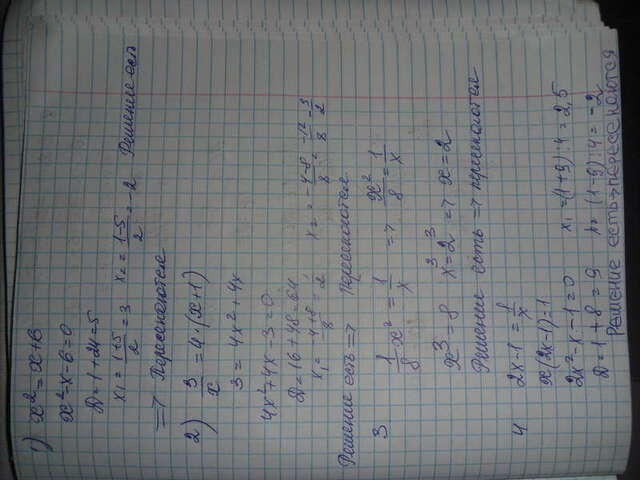 1) x² = x+6
x²-x-6=0
D=1+24=5
x₁ = (1+5)/2 = 3 x₂ = (1-5)/2 = -2 Решение есть
=> Пересекаются
2) 3/x = 4·(x+1)
3 = 4x²+4x
4x²+4x-3=0
D=16+48=64
x₁ = (-4+8)/8 = 1/2 x₂ = (-4-8)/8 = -12/8 = 3/2
Решение есть => пересекаются
3 1/8 x² = 1/x => x²/8 = 1/x
x³=8 x³=2³ => x=2
Решение есть => пересекаются
4 2x-1 = 1/x
x(2x-1)=1
2x²-x-1=0 x₁=(1+9):4=2,5
D=1+8=9 (1-9):4=-2
Решение есть=>пересекаются